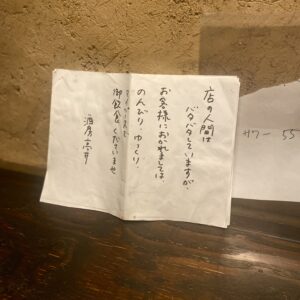 店の人間は
バタバタしていますが、
お客様におかれましては、
のんびり、ゆっくり、
マイペースで
御飲食くださいませ
酒房
サワー 55